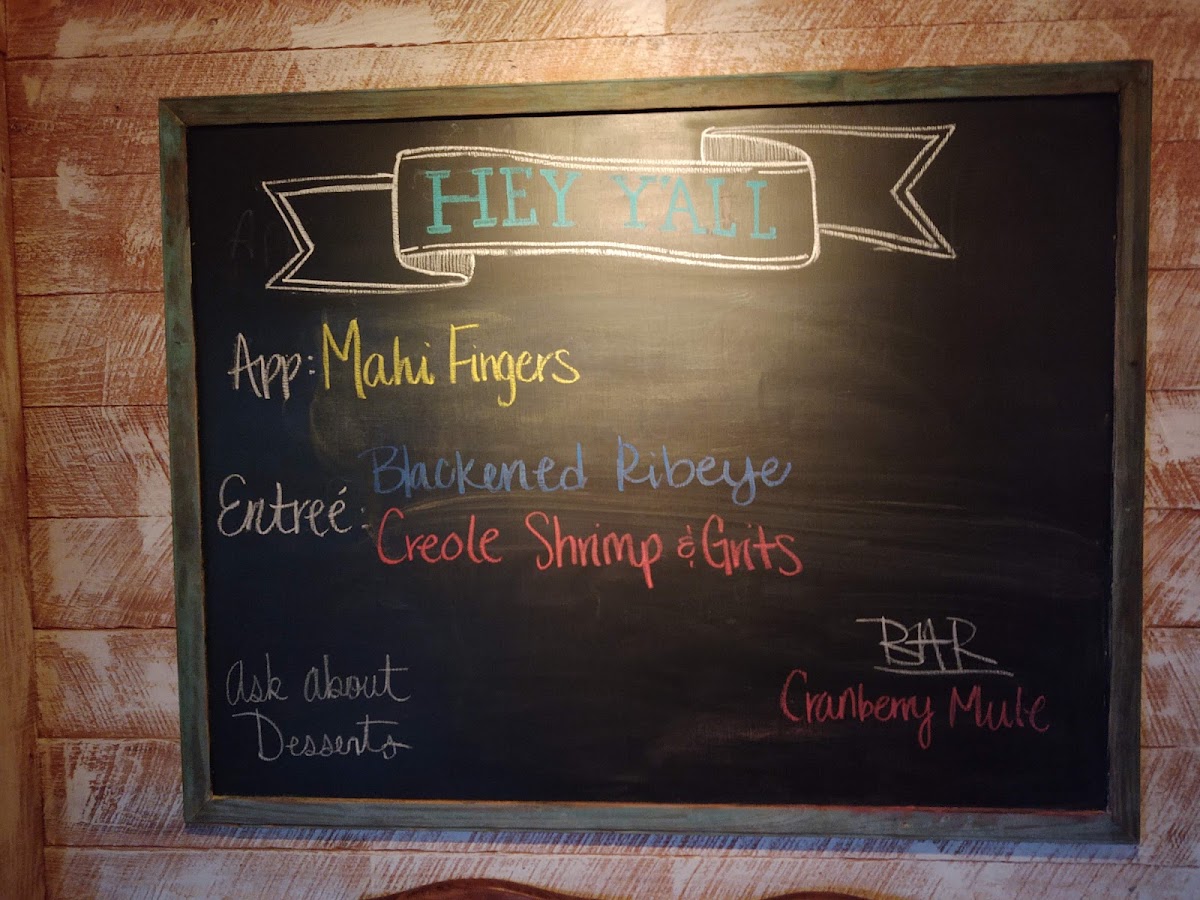 HEY Y'ALL
App: Mahi Fingers
Blackened Ribeye
Entreé:
Creole Shrimp & Grits
BAR
Cranberry Mule
Ask about
Desserts